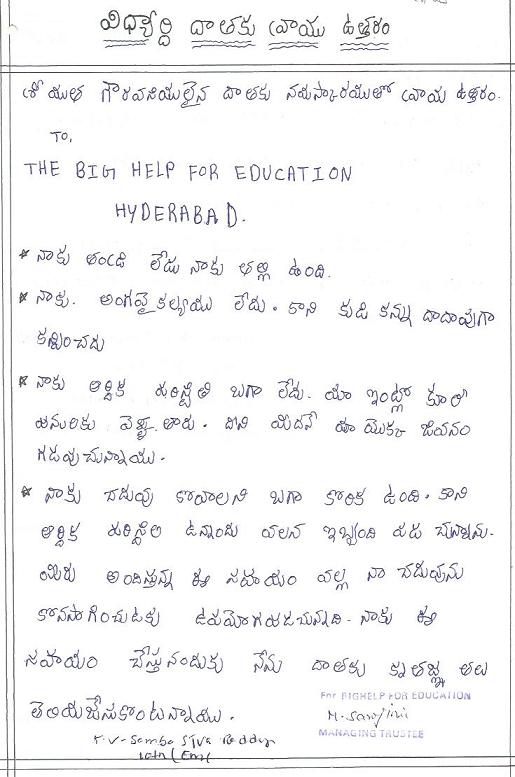 విద్యార్ది దాతకు వ్రాయు ఉత్తరం
శ్రీ యుత గౌరవనియులైన దాతకు నమస్కారయులతో వ్రాయు ఉత్తరం.
TO,
THE BIG HELP FOR EDUCATION
HYDERABAD.
* నాకు తండ్రి లేడు నాకు తల్లి ఉంది.
* నాకు. అంగవైకల్యయు లేదు. కాని కుడి కన్ను దాదాపుగా
కన్పించదు
* నాకు ఆర్దిక పరిస్థితి బగా లేదు. మా ఇంట్లో కూలి
పనులకు వెళ్ళుతారు. దాని మిదనే మా యొక్క జీవనం
గడపుచున్నాయు.
* నాకు చదువు కోవాలని బగా కోరిక ఉంది. కాని
ఆర్దిక పరిస్థితి ఉన్నందు వలన ఇబ్బంది పడు చున్నాను.
మీరు అందిస్తున్న ఈ సహాయం వల్ల నా చదువును
కొనసాగించుటకు ఉపయోగపడుచున్నది. నాకు ఈ
సహాయం చేస్తునందుకు నేను దాతకు కృతజ్ఞతలు
తెలియజేసుకొంటున్నాయు.
For BIGHELP FOR EDUCATION
M. Sarojini
MANAGING TRUSTEE
K.V. Samba Siva Reddy
10th (EM)